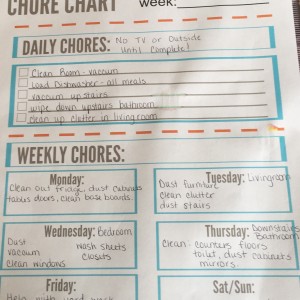 CHORE CHART week:
DAILY CHORES: No TV or Outside
Until Complete!
Clean Room - vaccum
Load Dishwasher - all meals
vaccum upstairs
wipe down upstairs bathroom
clean up clutter in livingroom
WEEKLY CHORES:
Monday:
Clean out fridge, dust cabinets
tables, doors, clean base boards.
Tuesday: Livingroom
Dust furniture
clean clutter
dust stairs
Wednesday: Bedroom
Dust wash sheets
vaccum closets
clean windows
Thursday: Downstairs
Bathroom
Clean: counters floors
toilet, dust cabinets
mirrors.
Friday:
Help with yard work
Sat/Sun: